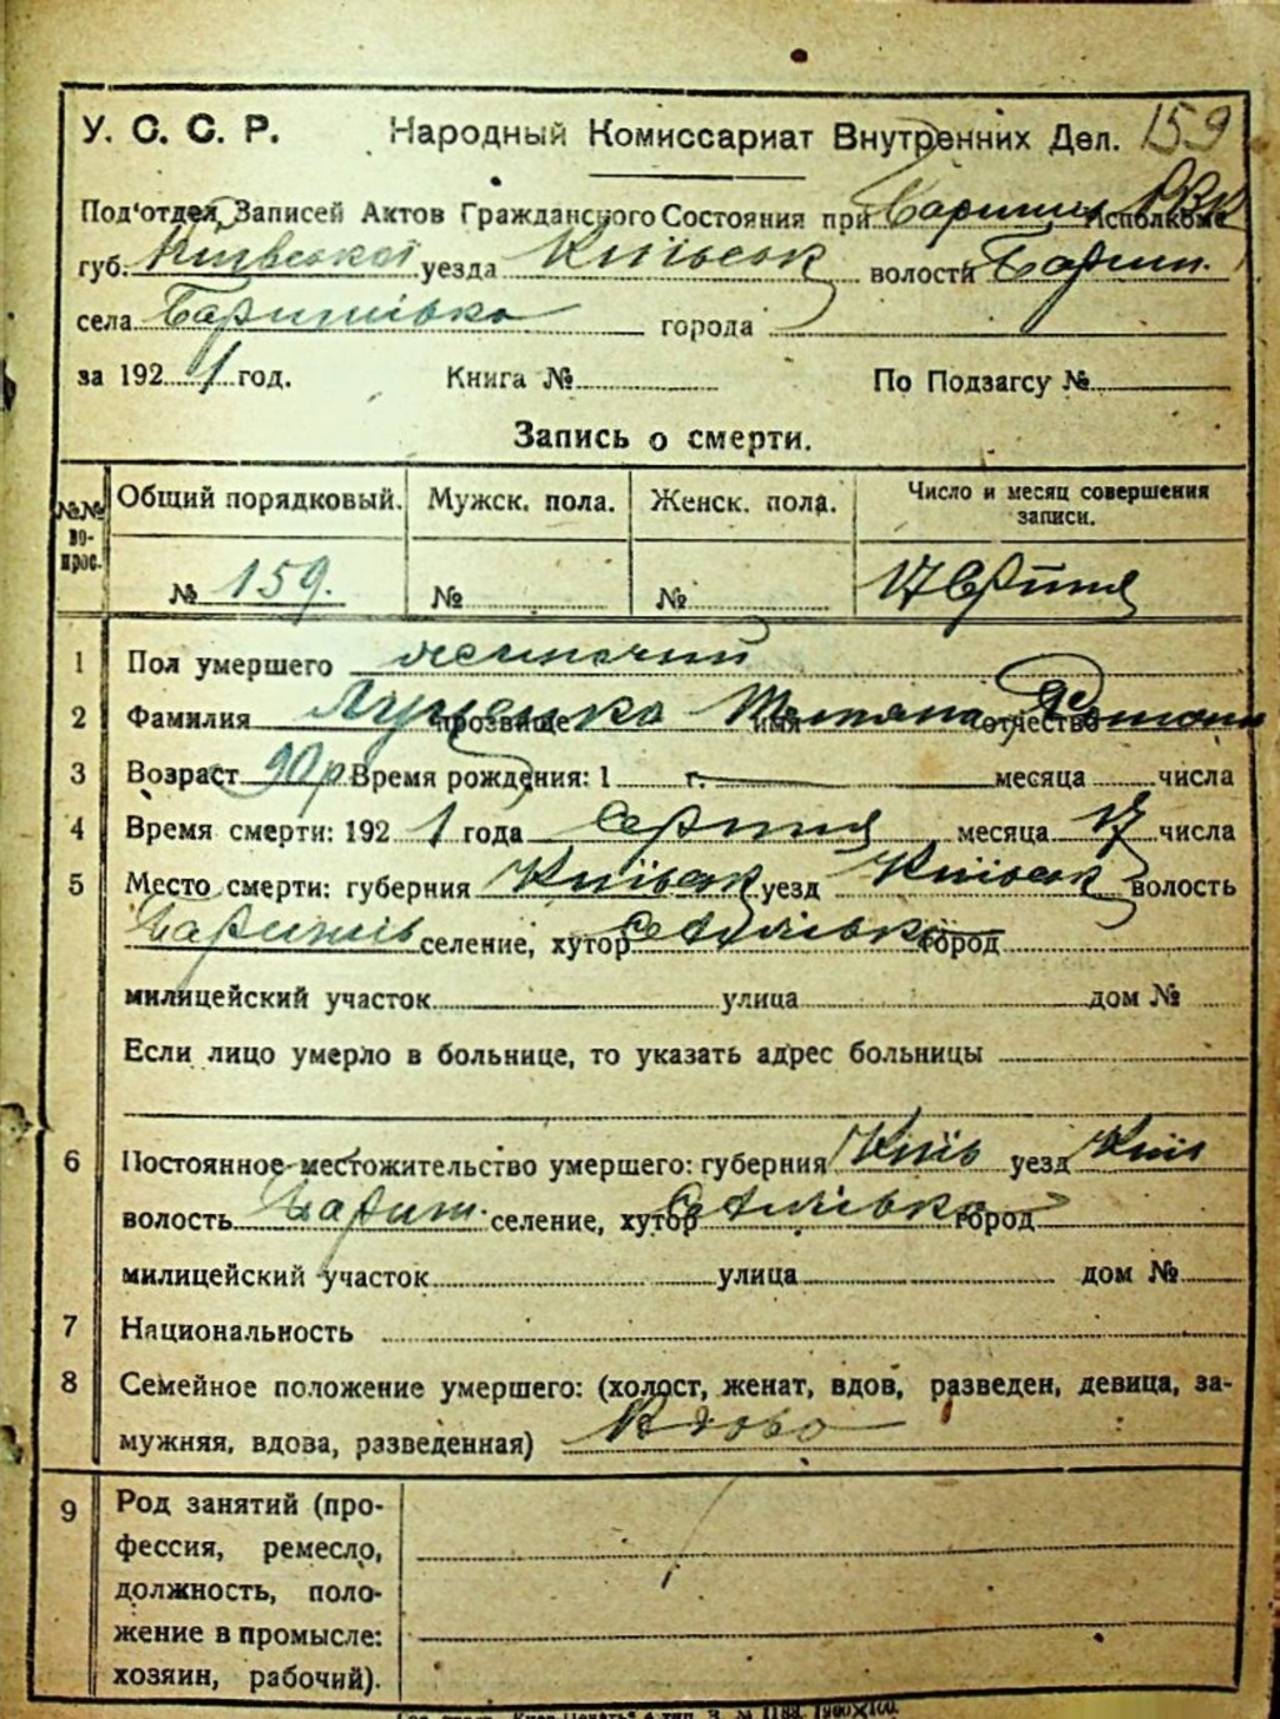 У. С. С. Р. Народный Комиссариат Внутренних Дел. 159
Под'отдел Записей Актов Гражданского Состояния при Баришів РВК Исполкоме
губ. Київської уезда Київськ волости Бариш.
села Баришівка города
за 1921 год. Книга № По Подзагсу №
Запись о смерти.
№№ вопрос. Общий порядковый. Мужск. пола. Женск. пола. Число и месяц совершения записи.
№ 159. № № 17 Серпня
1 Пол умершего жиночий
2 Фамилия Луценко прозвище Тетяна имя отчество
3 Возраст 90 р Время рождения: 1 г. месяца числа
4 Время смерти: 1921 года Серпня месяца 17 числа
5 Место смерти: губерния Київськ уезд Київськ волость
Баришів селение, хутор Селичівка город
милицейский участок улица дом №
Если лицо умерло в больнице, то указать адрес больницы
6 Постоянное местожительство умершего: губерния Київ уезд Київ
волость Бариш. селение, хутор город
милицейский участок улица дом №
7 Национальность
8 Семейное положение умершего: (холост, женат, вдов, разведен, девица, за-
мужняя, вдова, разведенная) Вдова
9 Род занятий (про-
фессия, ремесло,
должность, поло-
жение в промысле:
хозяин, рабочий).